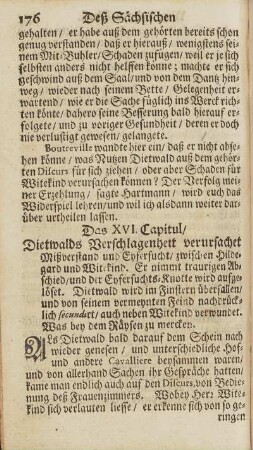 176 Deß Sächsischen
gehalten / er habe auß dem gehörten bereits schon
genug verstanden / daß er hierauß / wenigstens sei-
nem Mit-Buhler Schaden zufügen / weil er je sich
selbsten anders nicht helffen könne; machte er sich
geschwind auß dem Saal / und von dem Dantz hin-
weg / wieder nach seinem Bette / Gelegenheit er-
wartend / wie er die Sache füglich ins Werck rich-
ten könte / dahero seine Besserung bald hierauf er-
folgete / und zu voriger Gesundheit / deren er doch
nie verlustigt gewesen / gelangete.
Bouteville wandte hier ein / daß er nicht abse-
hen könne / was Nutzen Dietwald auß dem gehör-
ten Discurs für sich ziehen / oder aber Schaden für
Witekind verursachen können? Der Verfolg mei-
ner Erzehlung / sagte Hartmann / wird euch das
Widerspiel lehren / und wil ich alsdann weiter dar-
über urtheilen lassen.
Das XVI. Capitul /
Dietwalds Verschlagenheit verursachet
Mißverstand und Eyfersucht / zwischen Hilde-
gard und Witekind. Er nimmt traurigen Ab-
schied / und der Eyfersuchts-Knotte wird aufge-
löset. Dietwald wird im Finstern überfallen /
und von seinem vermeynten Feind nachdrück-
lich secundirt / auch neben Witekind verwundet.
Was bey dem Räysen zu mercken.
ALs Dietwald bald darauf dem Schein nach
wieder genesen / und unterschiedliche Hof-
und andere Cavalliere beysammen waren /
und von allerhand Sachen ihr Gespräche hatten /
kame man endlich auch auf den Discurs, von Bedie-
nung deß Frauenzimmers. Wobey Herz Wite-
kind sich verlauten liesse / er erkenne sich von so ge-
ringen